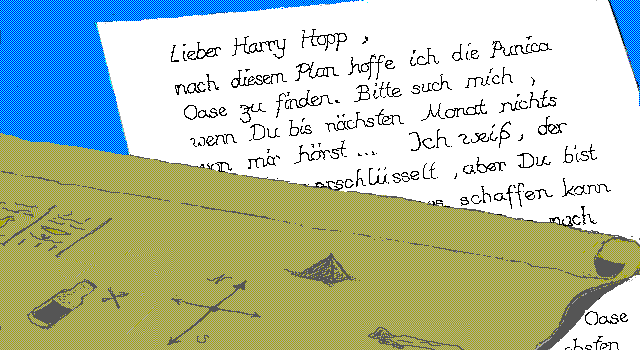 Lieber Harry Hopp ,
nach diesem Plan hoffe ich die Punica
Oase zu finden. Bitte such mich ,
wenn Du bis nächsten Monat nichts
von mir hörst ... Ich weiß, der
erschlüsselt , aber Du bist
schaffen kann
noch
Oase
chsten
S